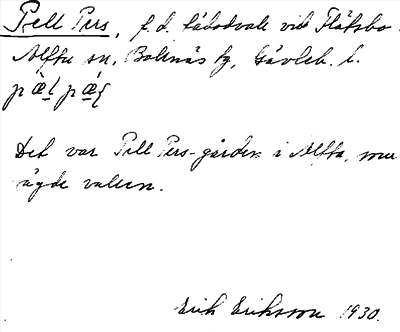 Pell Pers, f.d. fäbodvall vid Flätsbo
Alfta sn, Bollnäs fg, Gävleb. l.
Det var Pell Pers-gården i Alfta, som
ägde vallen.
Erik Eriksson 1930.